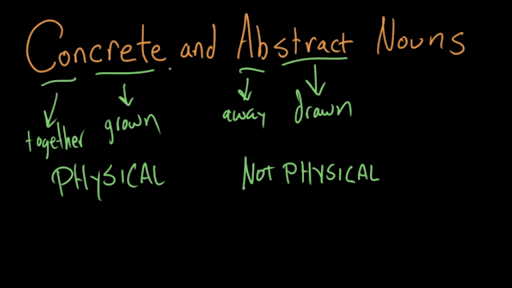 Concrete and Abstract Nouns
together grown away drawn
PHYSICAL NOT PHYSICAL